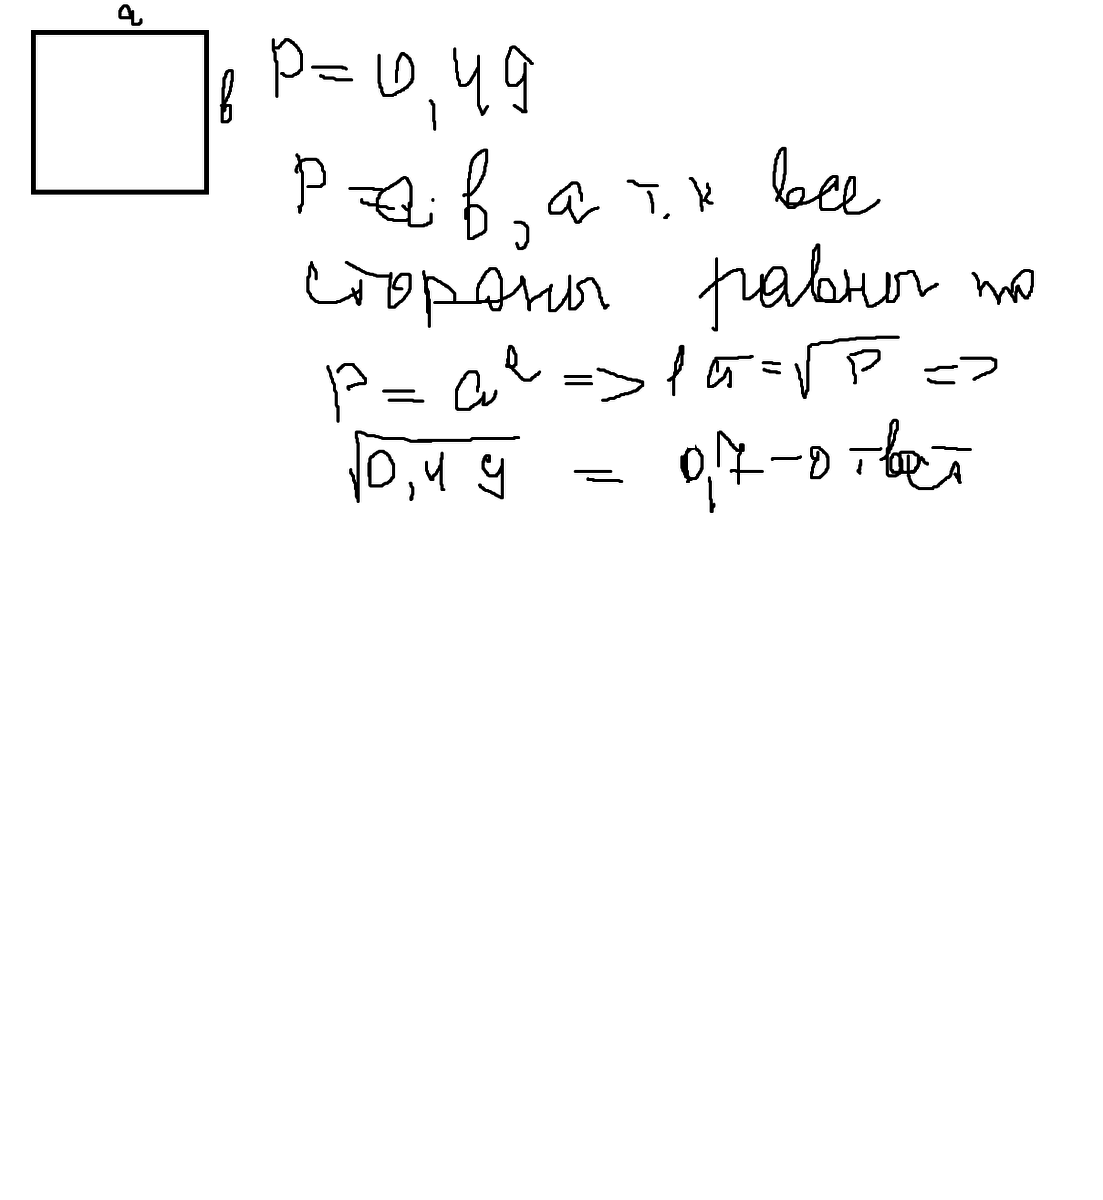 а
в
P = 0,49
P = a · в, а т.к все
стораны равны то
P = a² => 1 a = √P =>
√0,49 = 0,7 - ответ